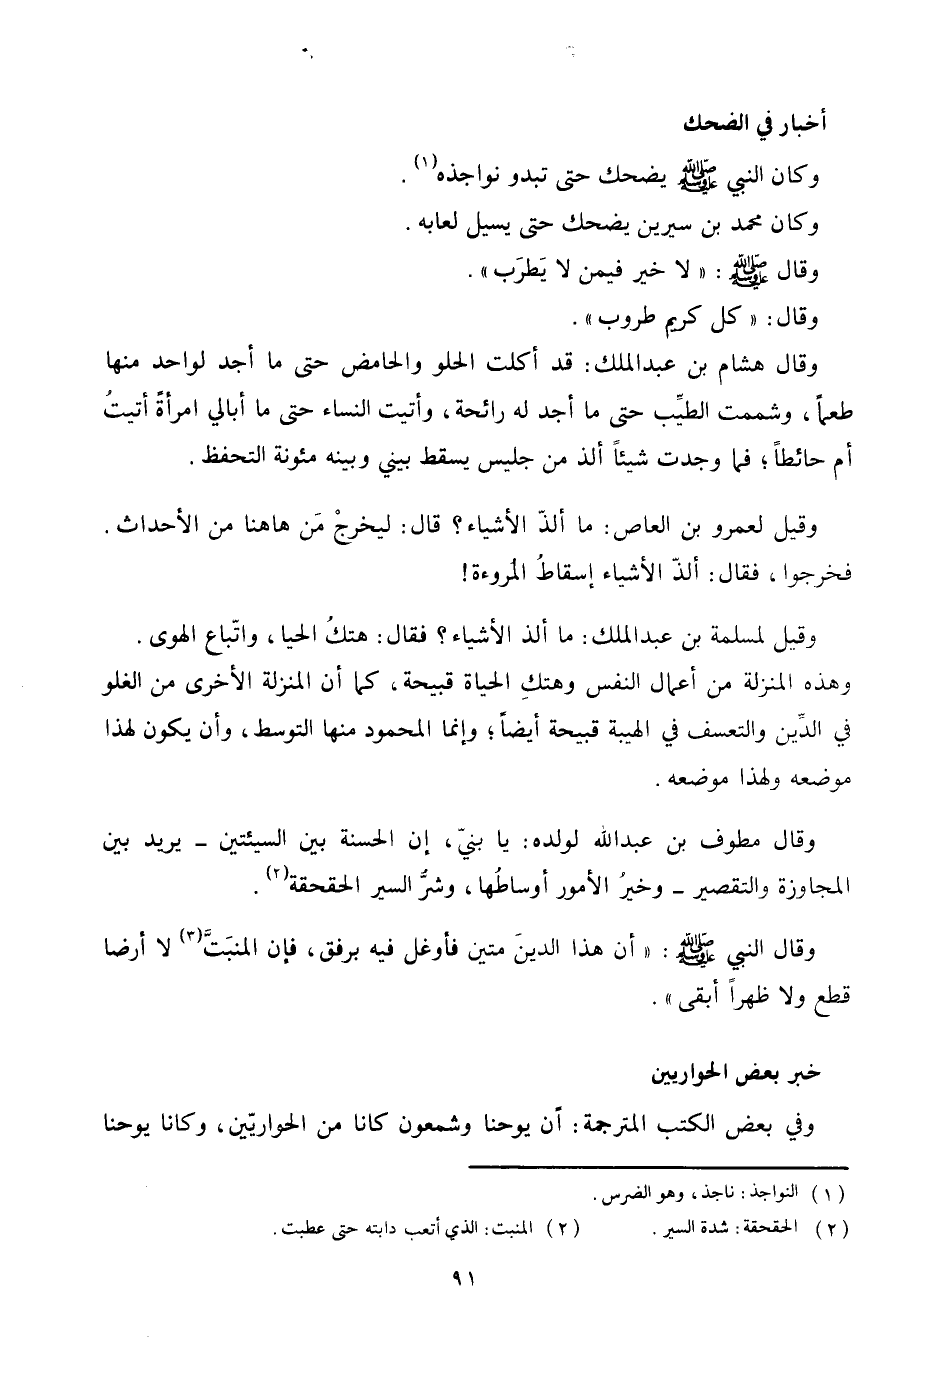 أخبار في الضحك
وكان النبي ﷺ يضحك حتى تبدو نواجذه(١) .
وكان محمد بن سيرين يضحك حتى يسيل لعابه .
وقال ﷺ : « لا خير فيمن لا يَطرَب » .
وقال : « كل كريم طروب » .
وقال هشام بن عبدالملك : قد أكلت الحلو والحامض حتى ما أجد لواحد منها
طعماً ، وشممت الطيِّب حتى ما أجد له رائحة ، وأتيت النساء حتى ما أبالي امرأةً أتيتُ
أم حائطاً ؛ فما وجدت شيئاً ألذ من جليس يسقط بيني وبينه مئونة التحفظ .
وقيل لعمرو بن العاص : ما ألذّ الأشياء ؟ قال : ليخرجْ مَن هاهنا من الأحداث .
فخرجوا ، فقال : ألذّ الأشياء إسقاطُ المروءة !
وقيل لمسلمة بن عبدالملك : ما ألذ الأشياء ؟ فقال : هتكُ الحيا ، واتّباع الهوى .
وهذه المنزلة من أعمال النفس وهتكِ الحياة قبيحة ، كما أن المنزلة الأخرى من الغلو
في الدِّين والتعسف في الهيبة قبيحة أيضاً ؛ وإنما المحمود منها التوسط ، وأن يكون لهذا
موضعه ولهذا موضعه .
وقال مطوف بن عبدالله لولده : يا بنيّ ، إن الحسنة بين السيئتين ــ يريد بين
المجاوزة والتقصير ــ وخيرُ الأمور أوساطُها ، وشرُّ السير الحقحقة(٢) .
وقال النبي ﷺ : « أن هذا الدينَ متين فأوغل فيه برفق ، فإن المنبَتَّ(٣) لا أرضا
قطع ولا ظهراً أبقى » .
خبر بعض الحواريين
وفي بعض الكتب المترجمة : أن يوحنا وشمعون كانا من الحواريّين ، وكانا يوحنا
(١) النواجذ : ناجذ ، وهو الضرس .
(٢) الحقحقة : شدة السير . (٢) المنبت : الذي أتعب دابته حتى عطبت .
٩١